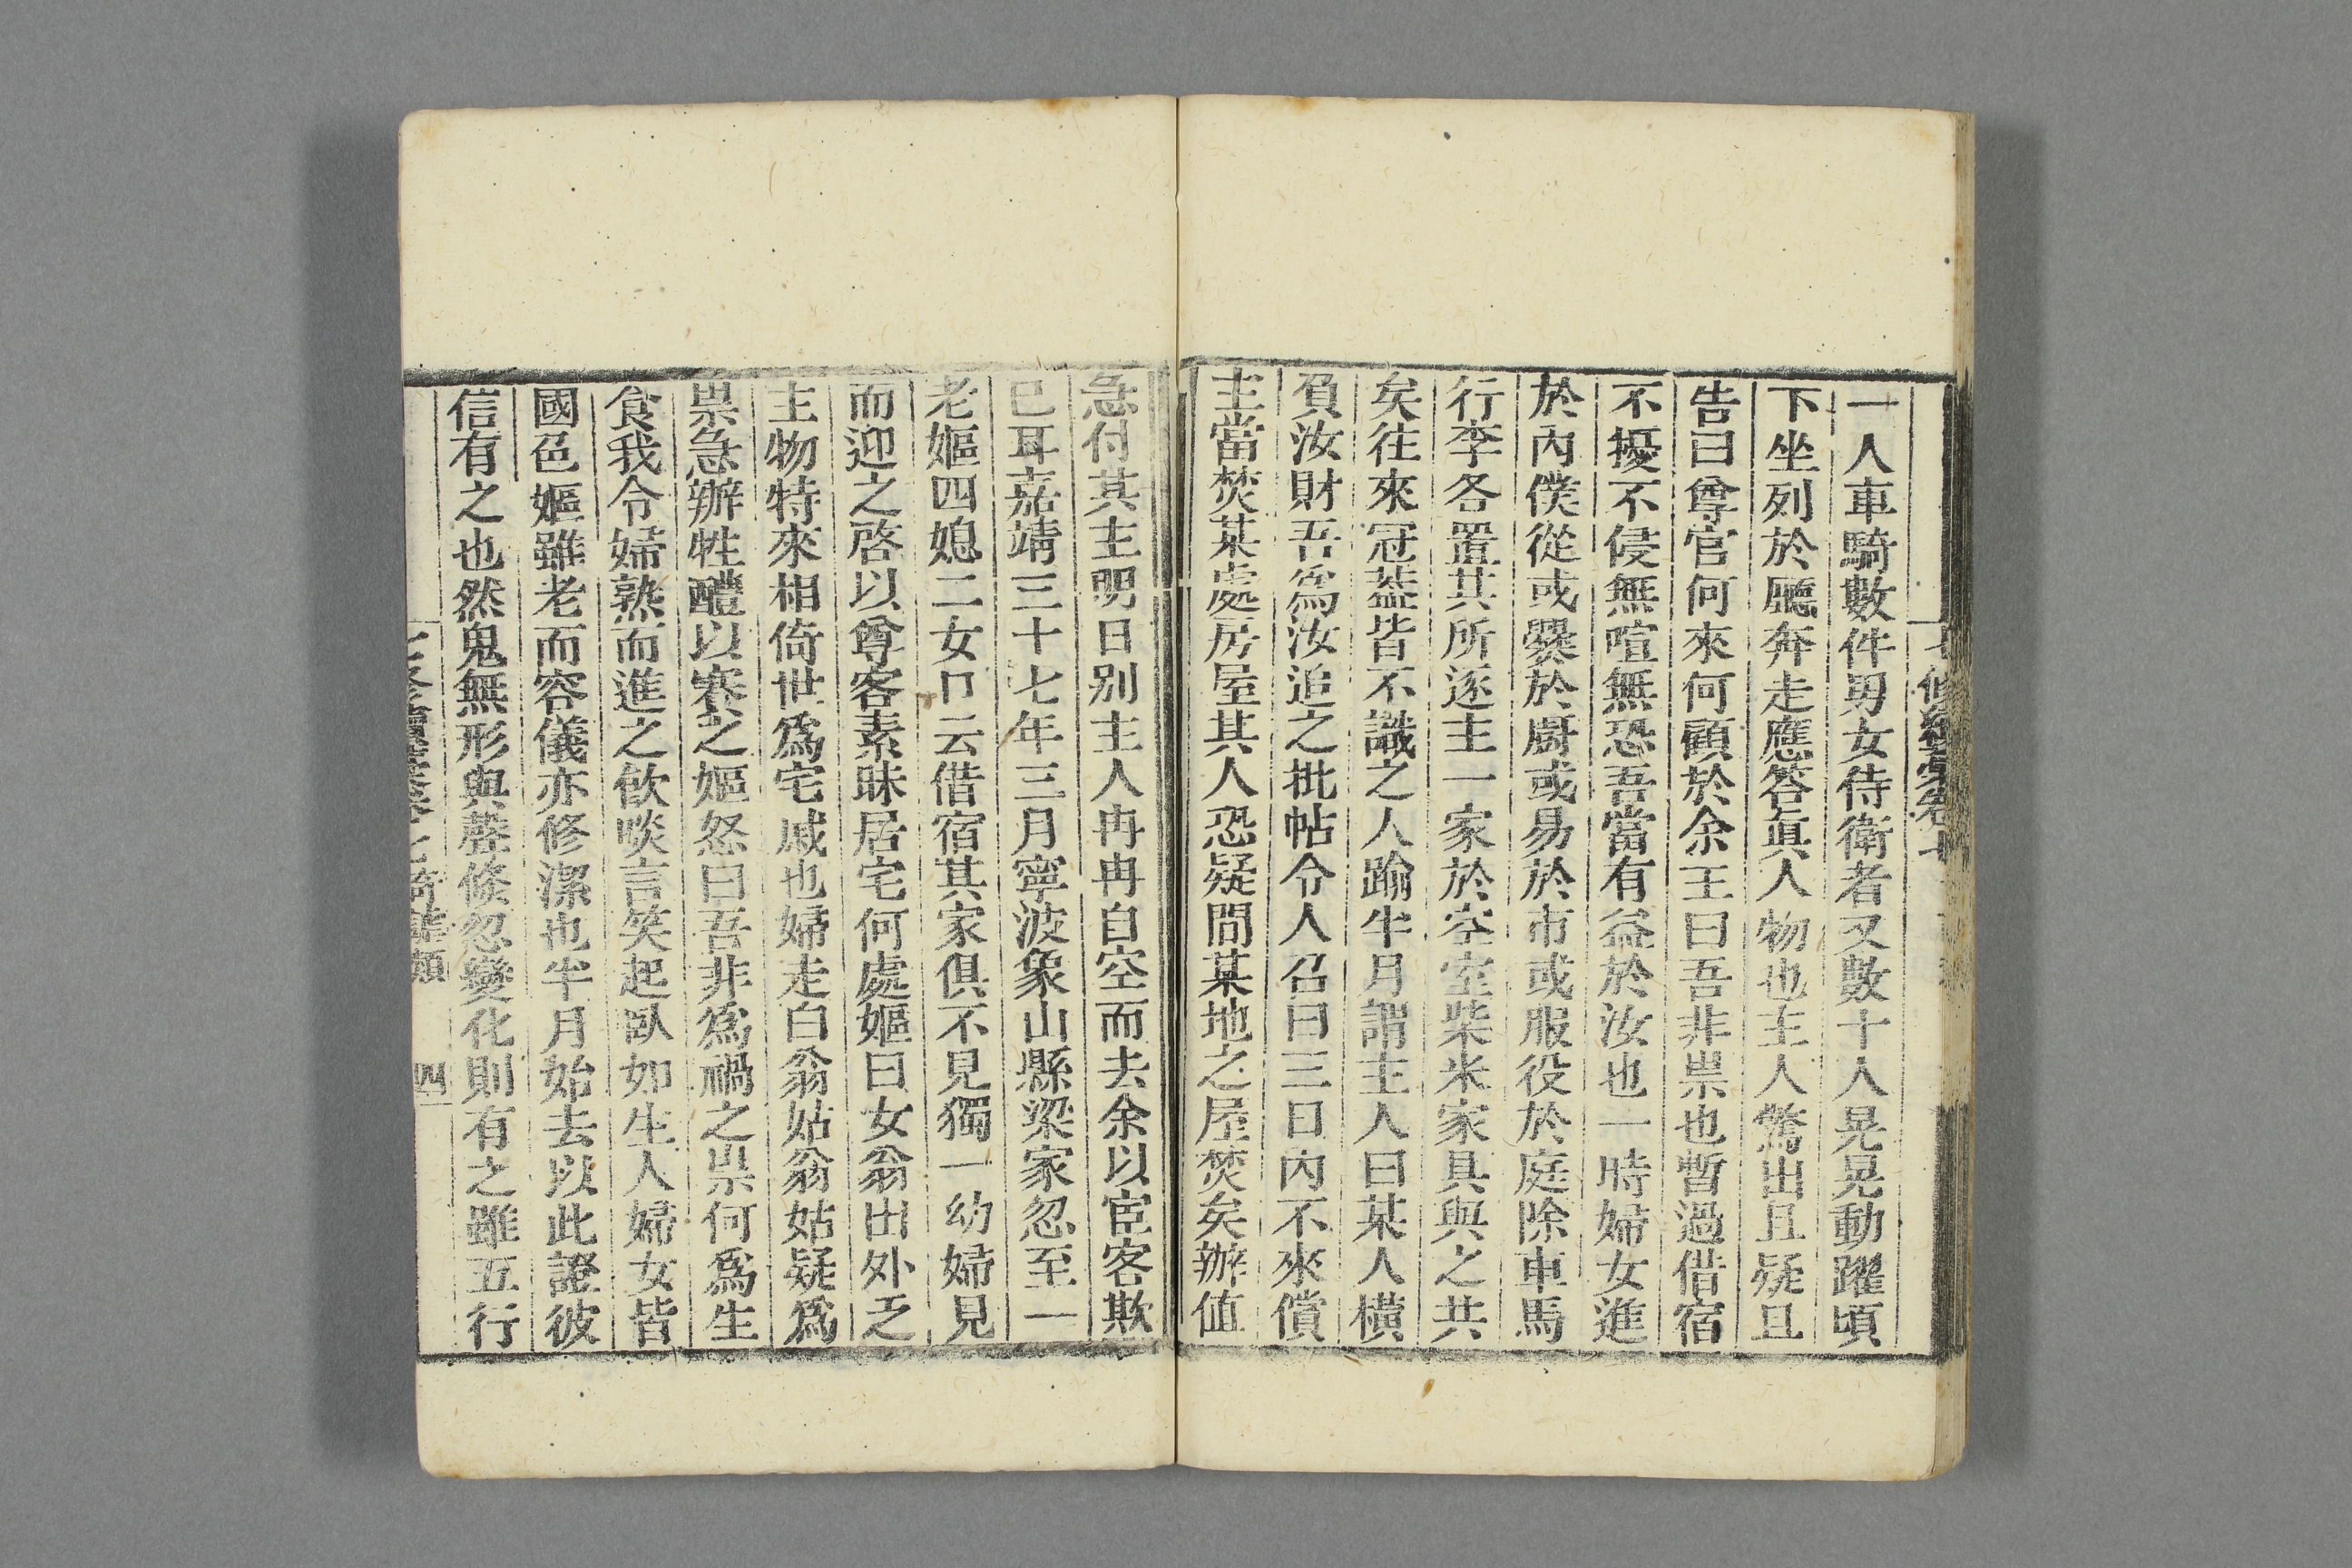 一人車騎數件男女侍衛者又數十人晃晃動躍頃
下坐列於廳奔走應答眞人物也主人驚出且疑且
告曰尊官何來何顧於余王曰吾非祟也暫過借宿
不擾不侵無喧無恐吾當有益於汝也一時婦女進
於內僕從或爨於廚或易於市或服役於庭除車馬
行李各置其所逐主一家於空室柴米家具與之共
矣往來冠蓋皆不識之人踰半月謂主人曰某人橫
負汝財吾爲汝追之批帖令人召曰三日內不來償
主當焚某處房屋其人恐疑間某地之屋焚矣辦值
急付其主明日别主人冉冉自空而去余以宦客欺
巳耳嘉靖三十七年三月寧波象山縣梁家忽至一
老嫗四媳二女口云借宿其家俱不見獨一幼婦見
而迎之啓以尊客素昧居宅何處嫗曰女翁出外乏
主物特來相倚世爲宅戚也婦走白翁姑翁姑疑爲
祟急辦牲醴以賽之嫗怒曰吾非爲禍之祟何爲生
食我令婦熟而進之飮啖言笑起臥如生人婦女皆
國色嫗雖老而容儀亦修潔也半月始去以此證彼
信有之也然鬼無形與聲倐忽變化則有之雖五行
四